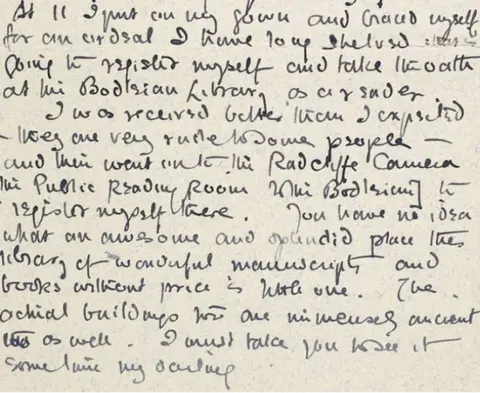 At 11 I put on my gown and braced myself
for an ordeal I have long shelved
going to register myself and take the oath
at the Bodleian Library as a reader
I was received better than I expected
– they are very rude to some people –
and then went on to the Radcliffe Camera
the Public Reading Room to the Bodleian] to
register myself there. You have no idea
what an awesome and splendid place this
library of wonderful manuscripts and
books without price is to one. The
actual buildings are immensely ancient
as well. I must take you to see it
some time my darling